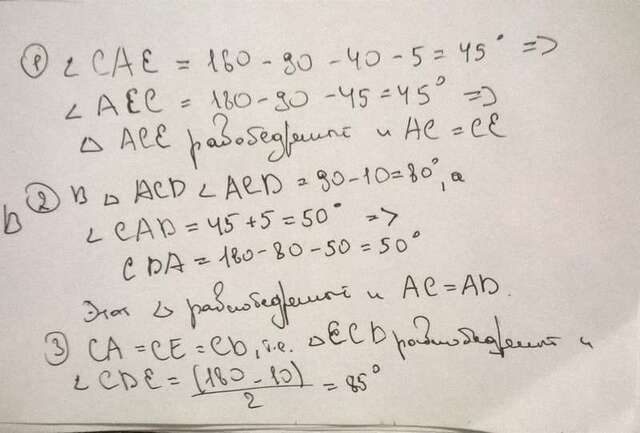 ① ∠ CAE = 180 - 90 - 40 - 5 = 45° =>
∠ AEC = 180 - 90 - 45 = 45° =>
△ ACE равнобедренный и AC = CE
② В △ ACD ∠ ACD = 90 - 10 = 80°, а
∠ CAD = 45 + 5 = 50° =>
CDA = 180 - 80 - 50 = 50°
Этот △ равнобедренный и AC = AD.
③ CA = CE = CD, т.е. △ ECD равнобедренный и
∠ CDE = (180 - 10) / 2 = 85°